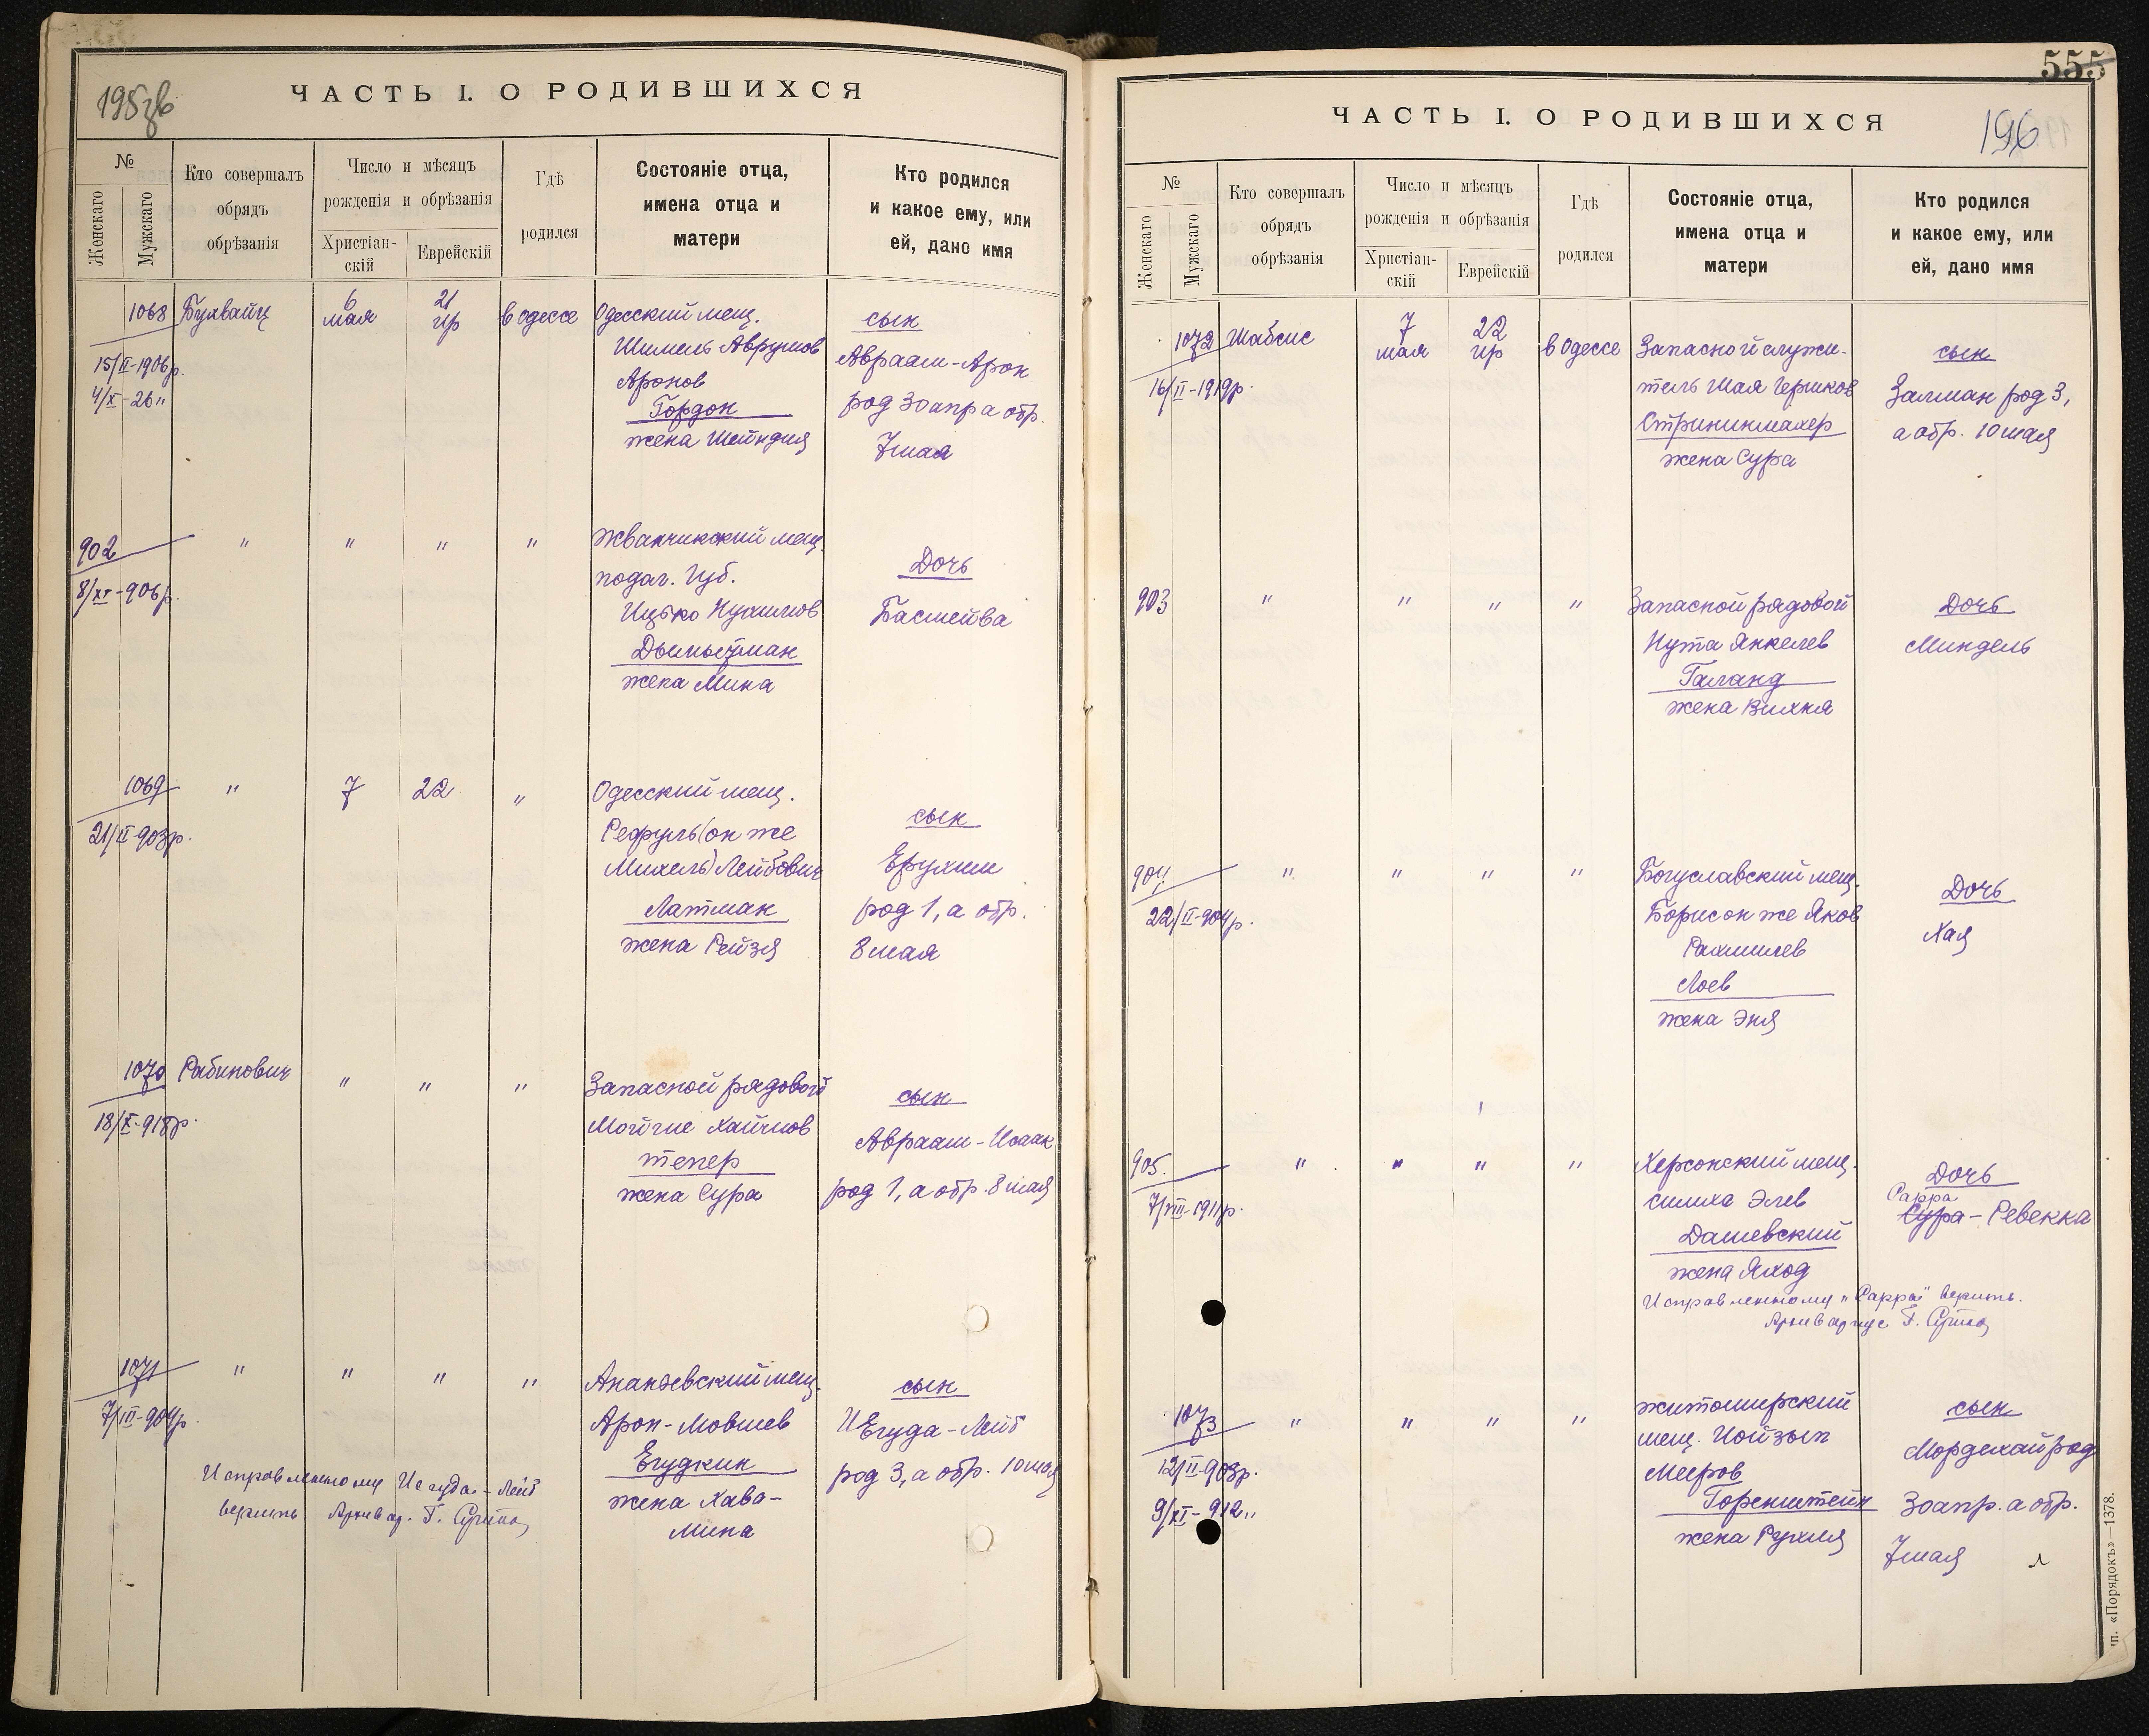 195зв
ЧАСТЬ I. О РОДИВШИХСЯ
№
Женскаго
Мужскаго
Кто совершалъ
обрядъ
обрѣзанія
Число и мѣсяцъ
рожденія и обрѣзанія
Христіан-
скій
Еврейскій
Гдѣ
родился
Состояніе отца,
имена отца и
матери
Кто родился
и какое ему, или
ей, дано имя
1068
15/II-1906р.
4/XI-26 "
6
мая
21
ир
в Одессе
Одесский мещ.
Шимель Аврумов
Аронов
Гордон
жена Шейндля
сын
Авраам-Арон
род 30 апр а обр.
7 мая
902
8/XI-906р.
" " " "
Жванчикский мещ.
подол. губ.
Ицько Нухимов
жена Мина
Дочь
Басшейва
1069
21/II-903р.
"
7
22
"
Одесский мещ.
Рефуль (он же
Михель) Лейбович
Латман
жена Рейзя
сын
Ерухим
род 1, а обр.
8 мая
1070
18/X-918р.
Рабинович
" " "
Запасной рядовой
Мойше Хаимов
тепер
жена Сура
сын
Авраам-Исаак
род 1, а обр. 8 мая
1071
7/III-904р.
" " " "
Ананьевский мещ.
Арон-Мовшев
Егудкин
жена Хава-
Мина
сын
Иегуда-Лейб
род 3, а обр. 10 мая
Исправленному Иегуда-Лейб
верить Архивар. Г.
555
196
ЧАСТЬ I. О РОДИВШИХСЯ
№
Женскаго
Мужскаго
Кто совершалъ
обрядъ
обрѣзанія
Число и мѣсяцъ
рожденія и обрѣзанія
Христіан-
скій
Еврейскій
Гдѣ
родился
Состояніе отца,
имена отца и
матери
Кто родился
и какое ему, или
ей, дано имя
1072
16/II-1919р.
Шабсис
7
мая
22
ир
в Одессе
Запасной служи-
тель Шая Гершков
Стрининмахер
жена Сура
сын
Залман род 3,
а обр. 10 мая
903
" " " "
Запасной рядовой
Нута Янкелев
Галанд
жена Вихня
Дочь
Миндель
904
22/II-904р.
" " " "
Богуславский мещ.
Борис он же Яков
Рахмилев
Лоев
жена Эня
Дочь
Хая
905.
7/VIII-1911р.
" " " "
Херсонский мещ.
Симха Элев
Дашевский
жена Яход
Дочь
Сарра
Сура-Ревекка
Исправленному "Сарра" верить.
Архивариус Г.
1073
12/II-903р.
9/XI-912 "
" " " "
житомирский
мещ. Иойзып
Мееров
Горенштейн
жена Рухля
сын
Мордехай род
30 апр. а обр.
7 мая
п. «Порядокъ»—1378.